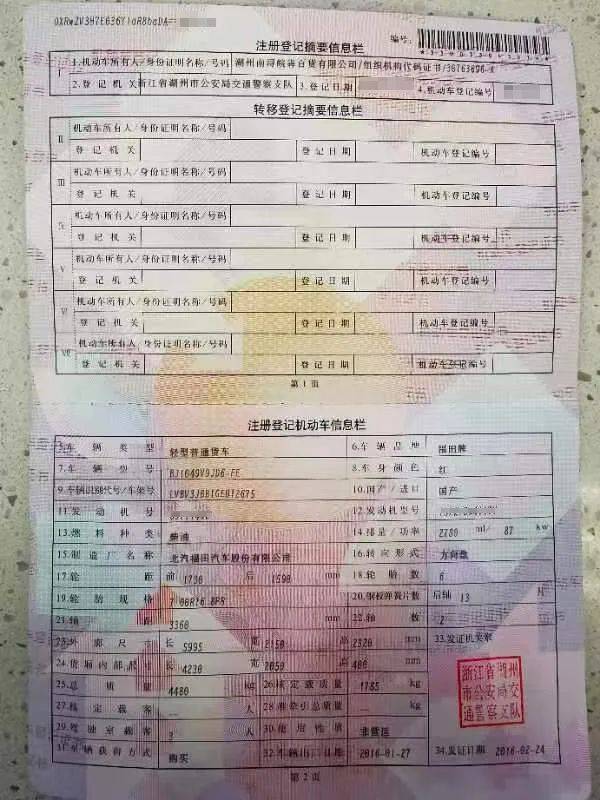 注册登记摘要信息栏
编号:
I
1.机动车所有人/身份证明名称/号码 湖州南浔皖海百货有限公司/组织机构代码证书/
2.登记机关 浙江省湖州市公安局交通警察支队 3.登记日期 4.机动车登记编号
转移登记摘要信息栏
II
机动车所有人/身份证明名称/号码
登记机关 登记日期 机动车登记编号
III
机动车所有人/身份证明名称/号码
登记机关 登记日期 机动车登记编号
机动车所有人/身份证明名称/号码
登记机关 登记日期 机动车登记编号
V
机动车所有人/身份证明名称/号码
登记机关 登记日期 机动车登记编号
VI
机动车所有人/身份证明名称/号码
登记机关 登记日期 机动车登记编号
VII
机动车所有人/身份证明名称/号码
登记机关 登记日期 机动车登记编号
第1页
注册登记机动车信息栏
5.车辆类型 轻型普通货车 6.车辆品牌 福田牌
7.车辆型号 BJ1049V9JD6-FE 8.车身颜色 红
9.车辆识别代号/车架号 10.国产/进口 国产
11.发动机号 12.发动机型号
13.燃料种类 柴油 14.排量/功率 2780 ml/ 87 kw
15.制造厂名称 北汽福田汽车股份有限公司 16.转向形式 方向盘
17.轮距 前 1730 后 1590 mm 18.轮胎数 6
19.轮胎规格 7.00R16 8PR 20.钢板弹簧片数 后轴 13 片
21.轴距 3360 mm 22.轴数 2
23.外廓尺寸 长 5995 宽 2150 高 2320 mm 33.发证机关章
24.货厢内部尺寸 长 4230 宽 2050 高 400 mm
25.总质量 4480 kg 26.核定载质量 1785 kg
27.核定载客 — 人 28.准牵引总质量 — kg
29.驾驶室载客 人 30.使用性质 非营运
31.车辆获得方式 购买 32.车辆出厂日期 2016-01-27 34.发证日期 2016-02-24
浙江省湖州
市公安局交
通警察支队
第2页